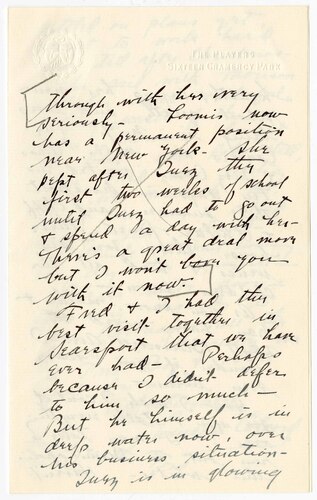 THE PLAYERS
SIXTEEN GRAMERCY PARK
through with her very
seriously - Loomis now
has a permanent position
near New York - She
kept after Suzy the
first two weeks of school
until Suzy had to go out
& spend a day with her -
There's a great deal more
but I won't bore you
with it now.
Fred & I had the
best visit together in
Searsport that we have
ever had - Perhaps
because I didn't defer
to him so much -
But he himself is in
deep water now, over
his business situation -
Suzy is in glowing